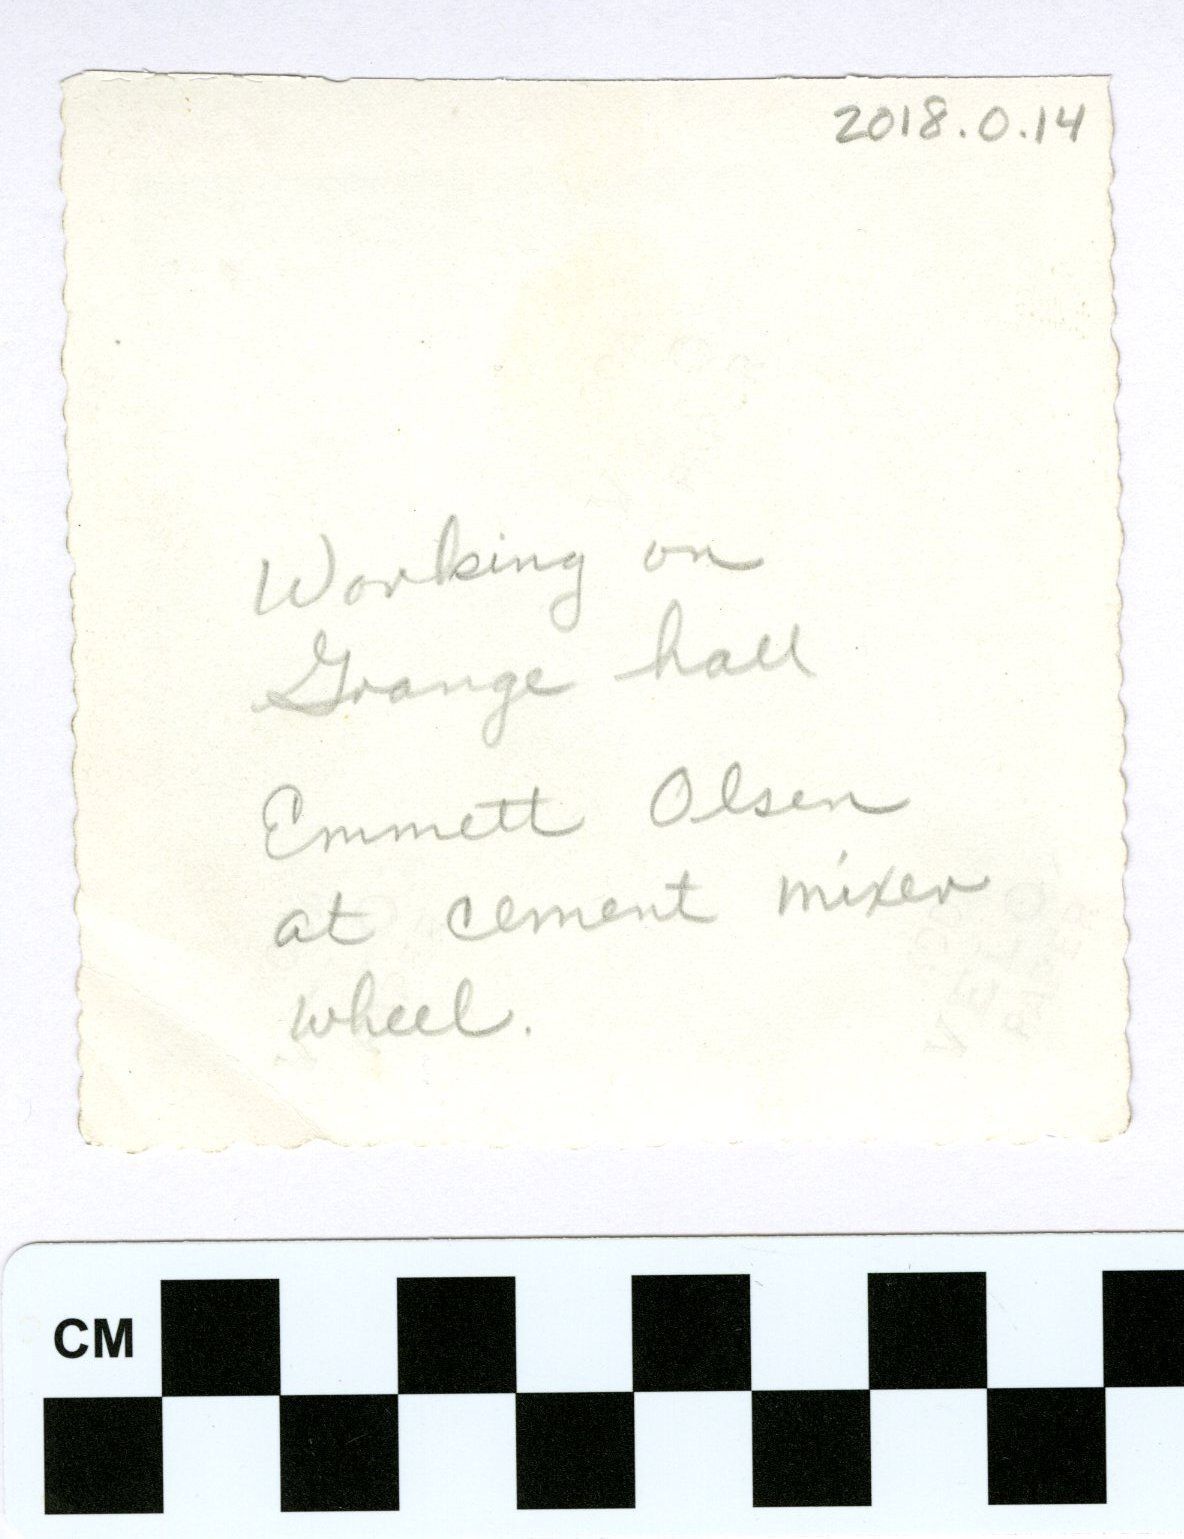 2018.0.14
Working on
Grange hall
Emmett Olsen
at cement mixer
wheel.
CM